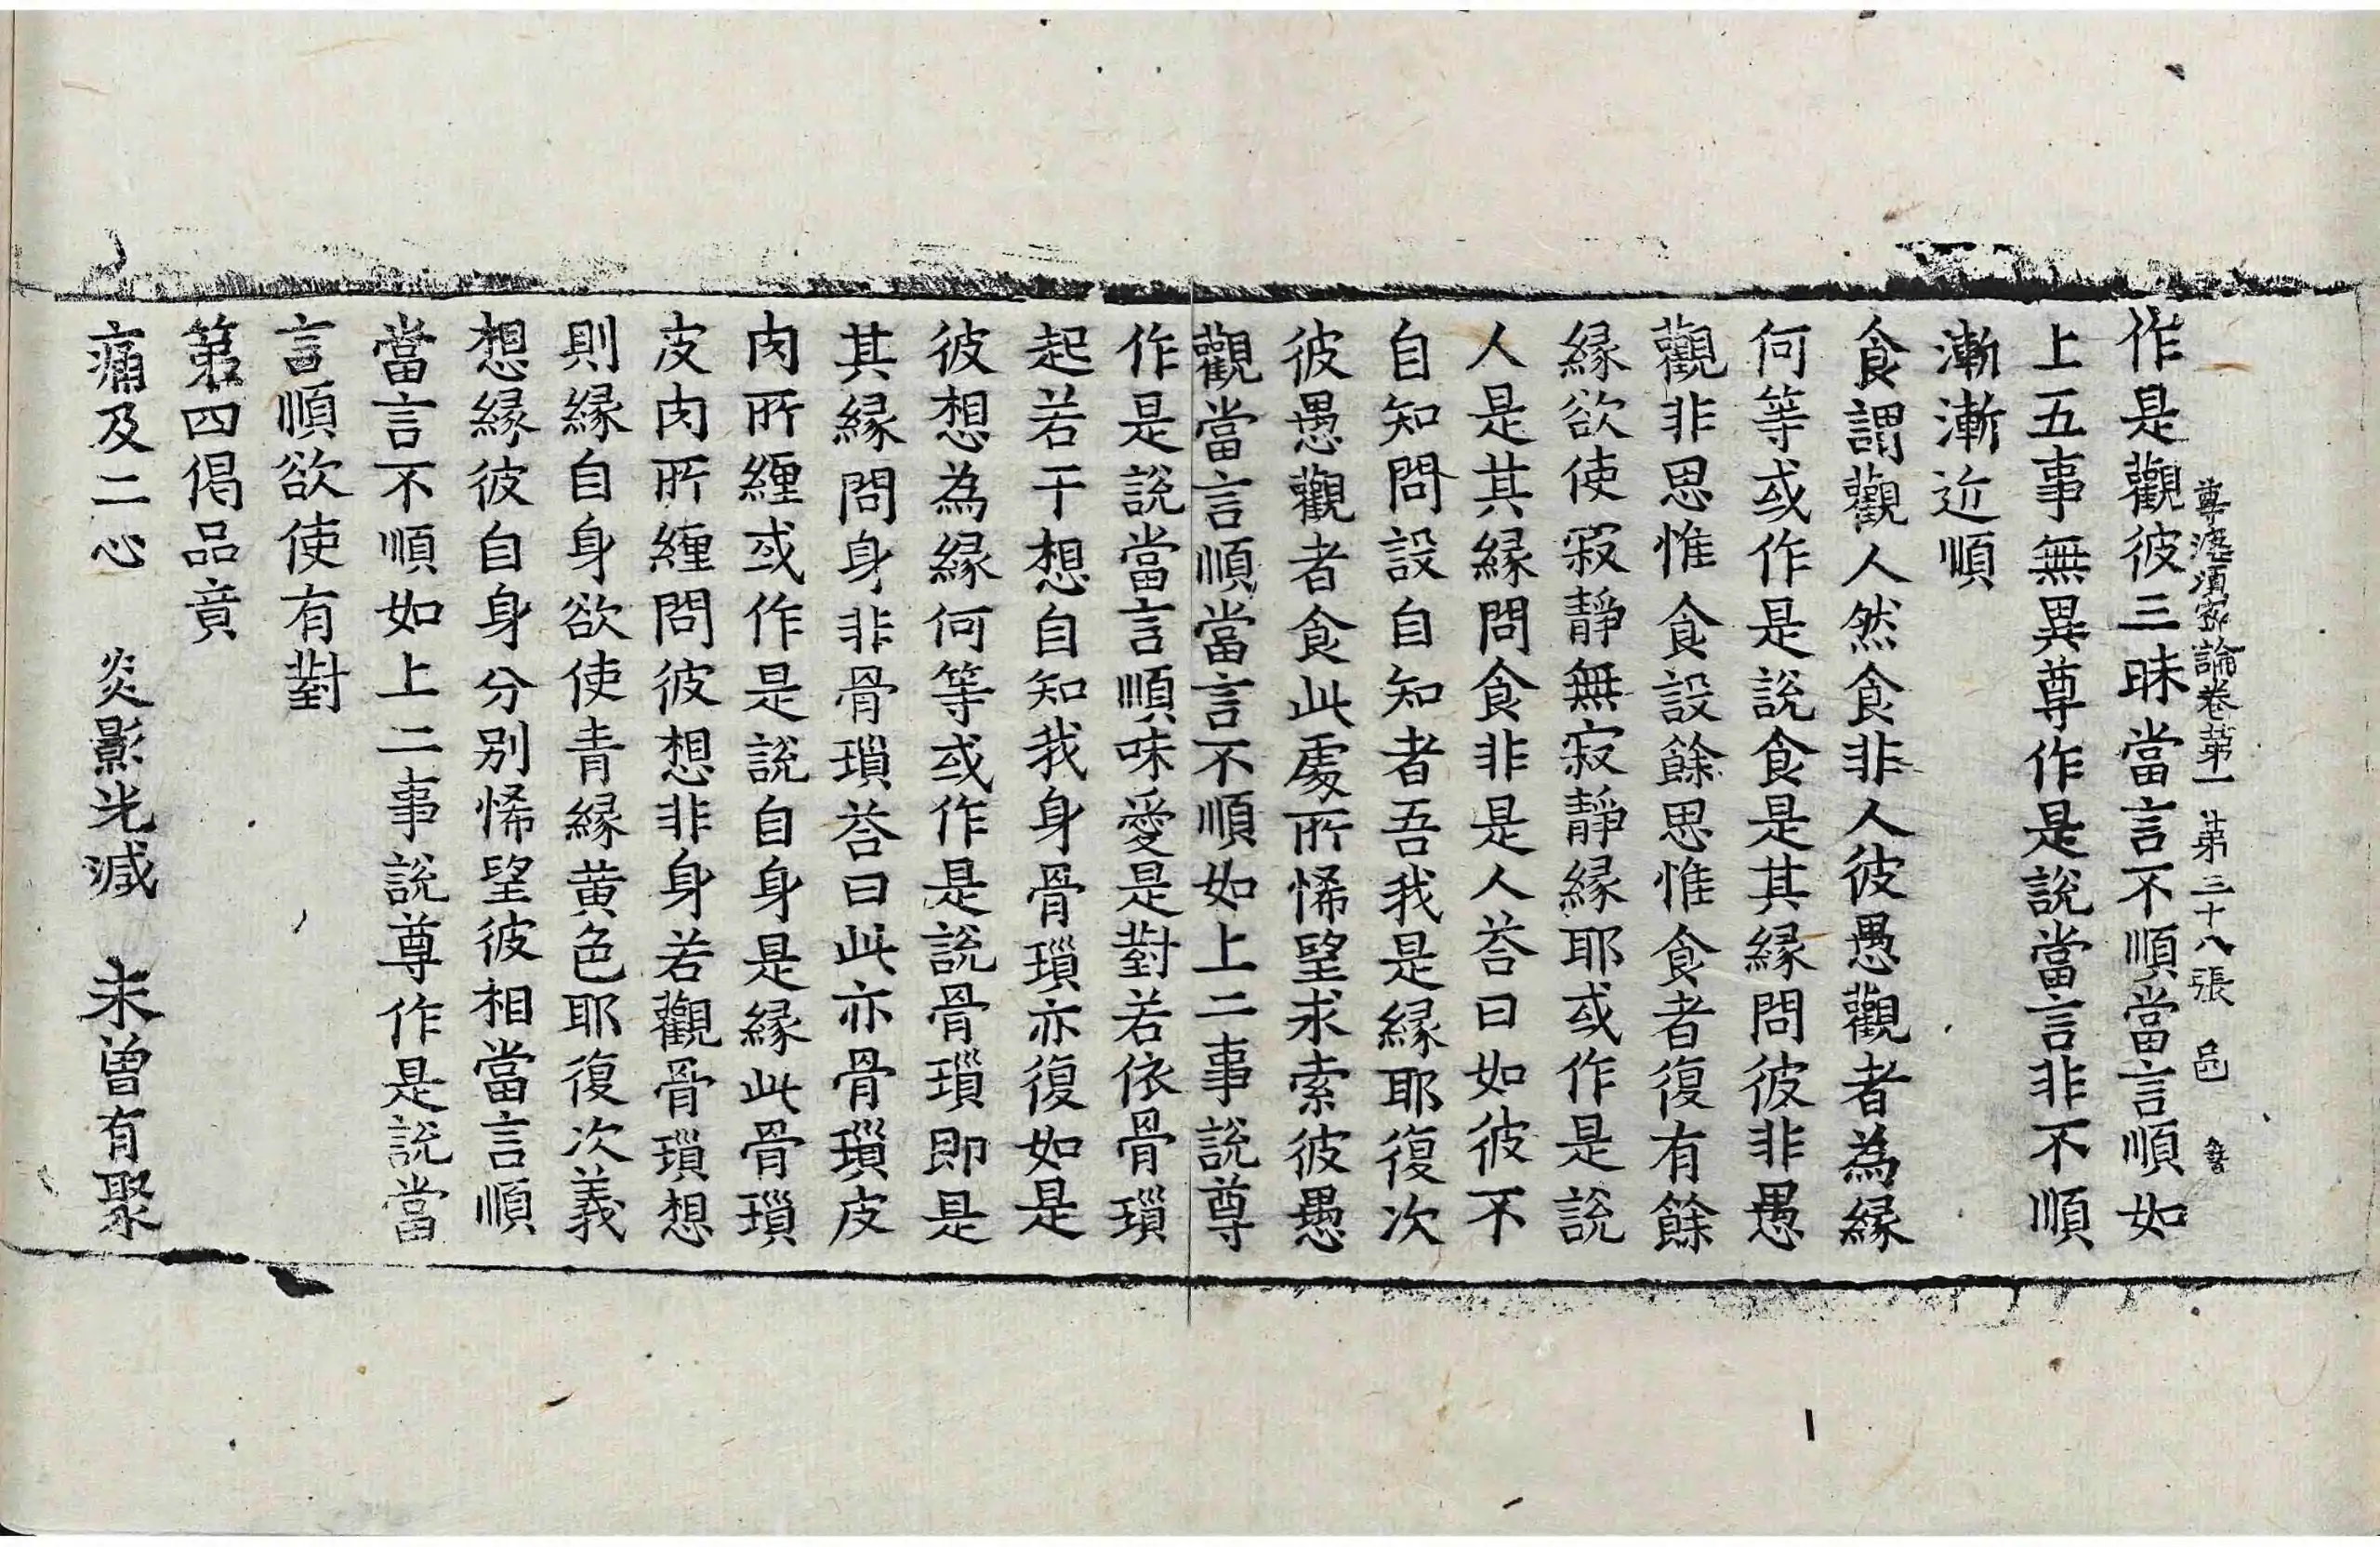 作是觀彼三昧當言不順當言順如
尊婆須蜜論卷第一 第三十八張 邑
上五事無異尊作是說當言非不順
漸漸近順
食謂觀人然食非人彼愚觀者為緣
何等或作是說食是其緣問彼非愚
觀非思惟食設餘思惟食者復有餘
緣欲使寂靜無寂靜緣耶或作是說
人是其緣問食非是人荅曰如彼不
自知問設自知者吾我是緣耶復次
彼愚觀者食此處所悕望求索彼愚
觀當言順當言不順如上二事說尊
作是說當言順味愛是對若依骨瑣
起若干想自知我身骨瑣亦復如是
彼想為緣何等或作是說骨瑣即是
其緣問身非骨瑣荅曰此亦骨瑣皮
肉所纏或作是說自身是緣此骨瑣
皮肉所纏問彼想非身若觀骨瑣想
則緣自身欲使青緣黃色耶復次義
想緣彼自身分別悕望彼相當言順
當言不順如上二事說尊作是說當
言順欲使有對
第四偈品竟
痛及二心 炎影光滅 未曾有聚